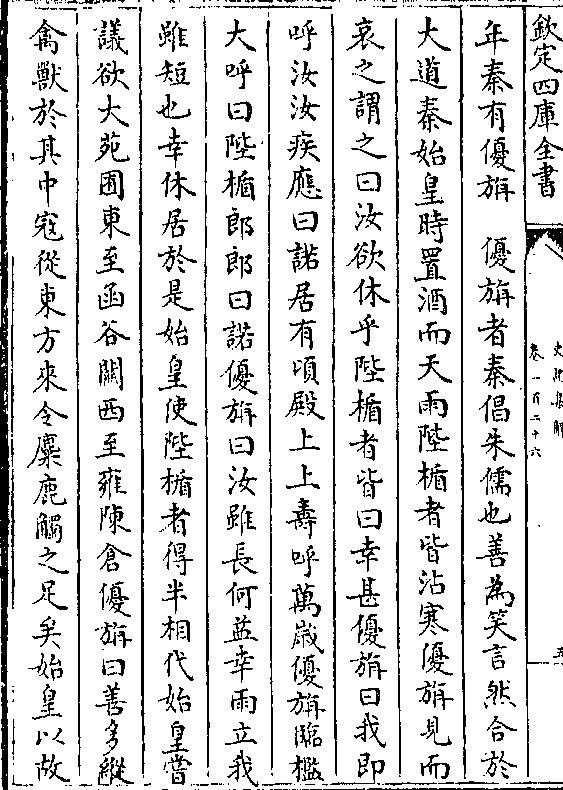 欽定四庫全書
史記集解
卷一百二十六
五
年秦有優旃　優旃者秦倡朱儒也善為笑言然合於
大道秦始皇時置酒而天雨陛楯者皆沾寒優旃見而
哀之謂之曰汝欲休乎陛楯者皆曰幸甚優旃曰我即
呼汝汝疾應曰諾居有頃殿上上壽呼萬歲優旃臨檻
大呼曰陛楯郎郎曰諾優旃曰汝雖長何益幸雨立我
雖短也幸休居於是始皇使陛楯者得半相代始皇嘗
議欲大苑囿東至函谷關西至雍陳倉優旃曰善多縱
禽獸於其中寇從東方來令麋鹿觸之足矣始皇以故